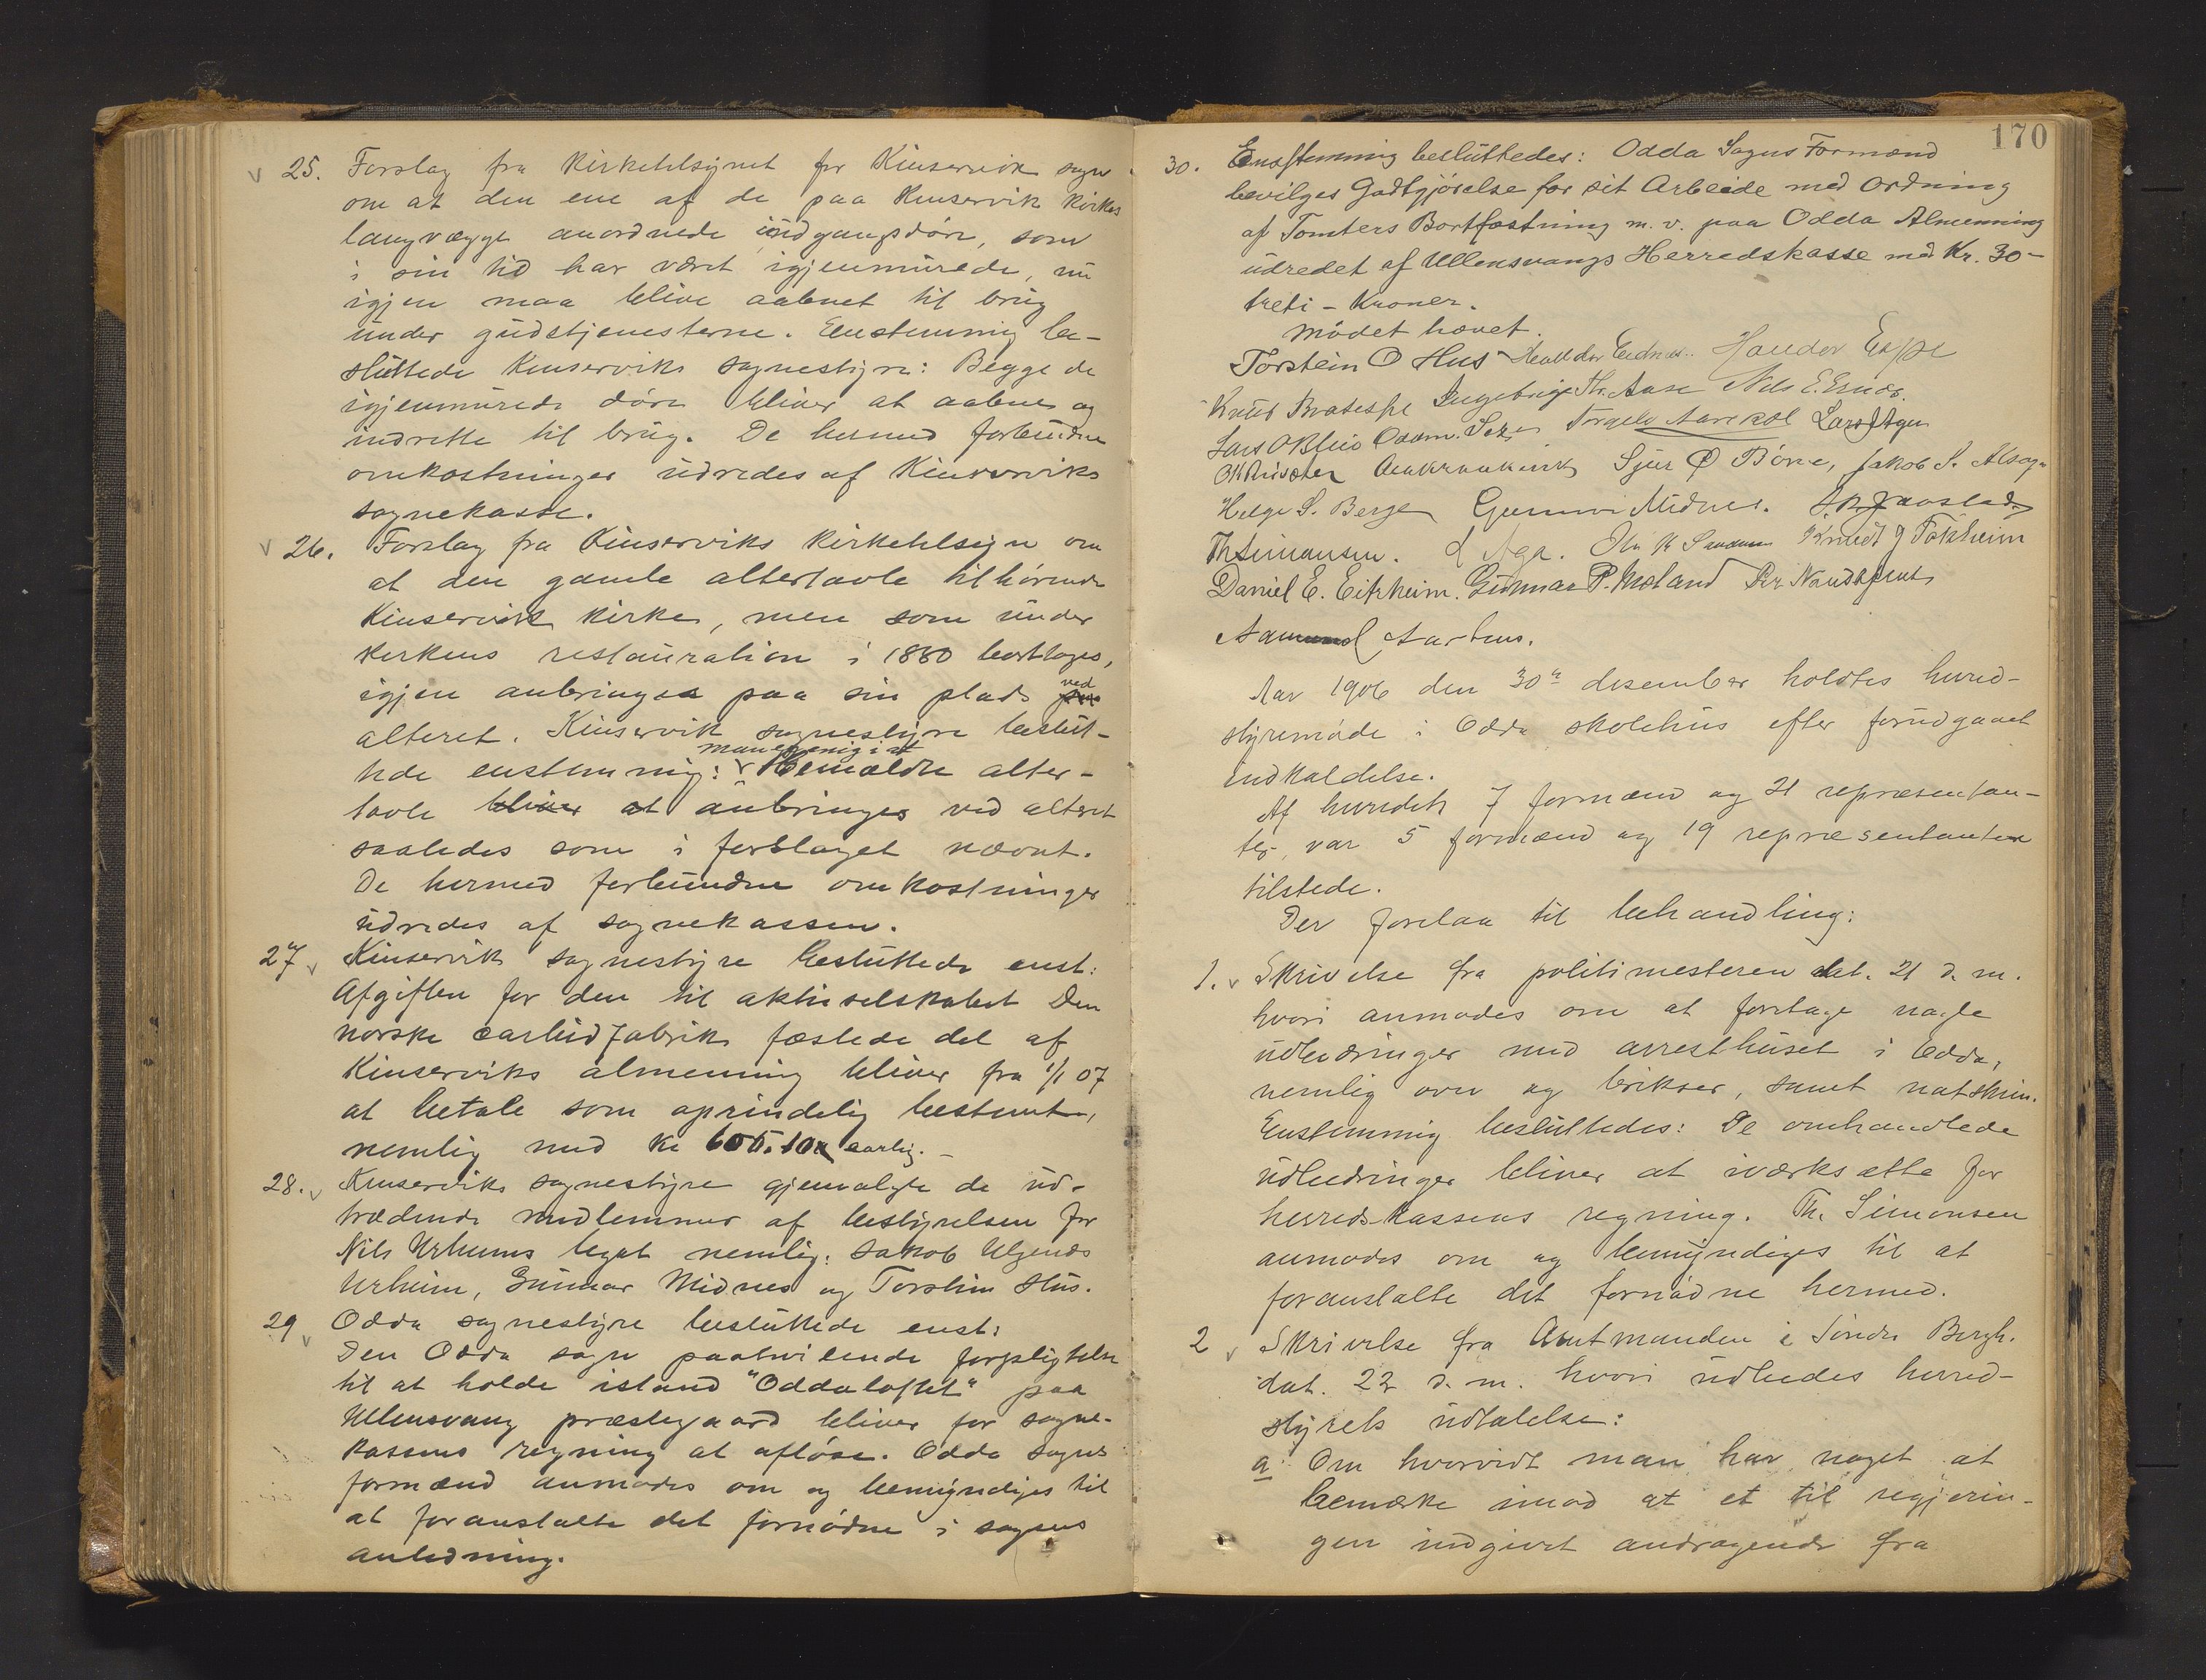 25. Forslag fra Kirketilsynet for Kinservik sogn
om at den ene af de paa Kinservik Kirkes
langvægge anordnede indgangsdøre, som
i sin tid har været igjenmurede, nu
igjen maa blive aabnet til brug
under gudstjenesterne. Enstemmig be-
sluttede Kinserviks sognestyre: Begge de
igjenmurede døre bliver at aabne og
indrette til brug. De hermed forbundne
omkostninger udredes af Kinserviks
sognekasse.
26. Forslag fra Kinserviks Kirketilsyn om
at den gamle altertavle tilhørende
Kinservik Kirke, men som under
Kirkens restauration i 1880 borttoges,
igjen anbringes paa sin plads ved
alteret. Kinservik sognestyre beslut-
tede enstemmig: man er enig i at Bemældte alter-
tavle bliver at anbringes ved alteret
saaledes som i forslaget nævnt.
De hermed forbundne omkostninger
udredes af sognekassen.
27 Kinservik sognestyre besluttede enst:
Afgiften for den til aktieselskabet Den
norske carbidfabrik fæstede del af
Kinserviks almenning bliver fra 1/1 07
at betale som oprindelig bestemt,
nemlig med kr 605.10 aarlig. -
28. Kinserviks sognestyre gjenvalgte de ud-
trædende medlemmer af bestyrelsen for
Nils Urheims legat nemlig: Jakob
Urheim, Gunnar Midnes og Torstein Hus.
29 Odda sognestyre besluttede enst:
Den Odda sogn paahvilende forpligtelse
til at holde istand "Oddaloftet" paa
Ullensvang præstegaard bliver for sogne-
kassens regning at afløse. Odda sogns
formænd anmodes om og bemyndiges til
at foranstalte det fornødne i sagens
anledning.
170
30. Enstemmig besluttedes: Odda Sogns Formænd
bevilges Godtgjørelse for sit Arbeide med Ordning
af Tomters Bortfæstning m. v. paa Odda Almenning
udredet af Ullensvangs Herredskasse med Kr. 30-
treti - Kroner.
Mødet hævet.
Torstein O Hus Halldor Haldor Espe
Knud Bratespe Ingebrigt Th. Aase Nils E.
Lars O Torgels Lars J Aga
Sjur O Børve, Jakob S.
Helge S. Berge Gunnar Midnes.
Th Simonsen. L Aga. Ola K Knudt J Tokheim
Daniel E. Eitrheim. Gunnar P. Moland Per
Aamund Aarhus.
Aar 1906 den 30te desember holdtes herred-
styremøde i Odda skolehus efter forudgaaet
indkaldelse.
Af herredets 7 formænd og 21 repræsentan-
ter, var 5 formænd og 19 repræsentanter
tilstede.
Der forelaa til behandling:
1. Skrivelse fra politimesteren dat. 21 d. m.
hvori anmodes om at foretage nogle
udbedringer med arresthuset i Odda,
nemlig ovn og brikser, samt natskrin.
Enstemmig besluttedes: De omhandlede
udbedringer bliver at iværksætte for
herredskassens regning. Th. Simonsen
anmodes om og bemyndiges til at
foranstalte det fornødne hermed.
2 Skrivelse fra Amtmanden i Søndre Bergh.
dat. 22 d. m. hvori udbedes herred-
styrets udtalelse:
a Om hvorvidt man har noget at
bemærke imod at et til regjerin-
gen indgivet andragende fra